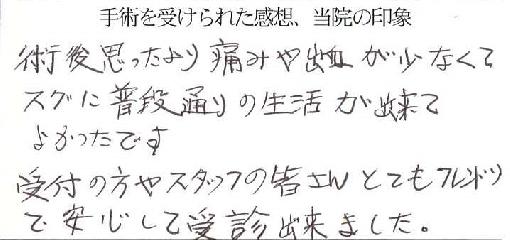 手術を受けられた感想、当院の印象
術後思ったより痛みや出血が少なくて
スグに普段通りの生活が出来て
よかったです
受付の方やスタッフの皆さんとてもフレンドリ
で安心して受診出来ました。